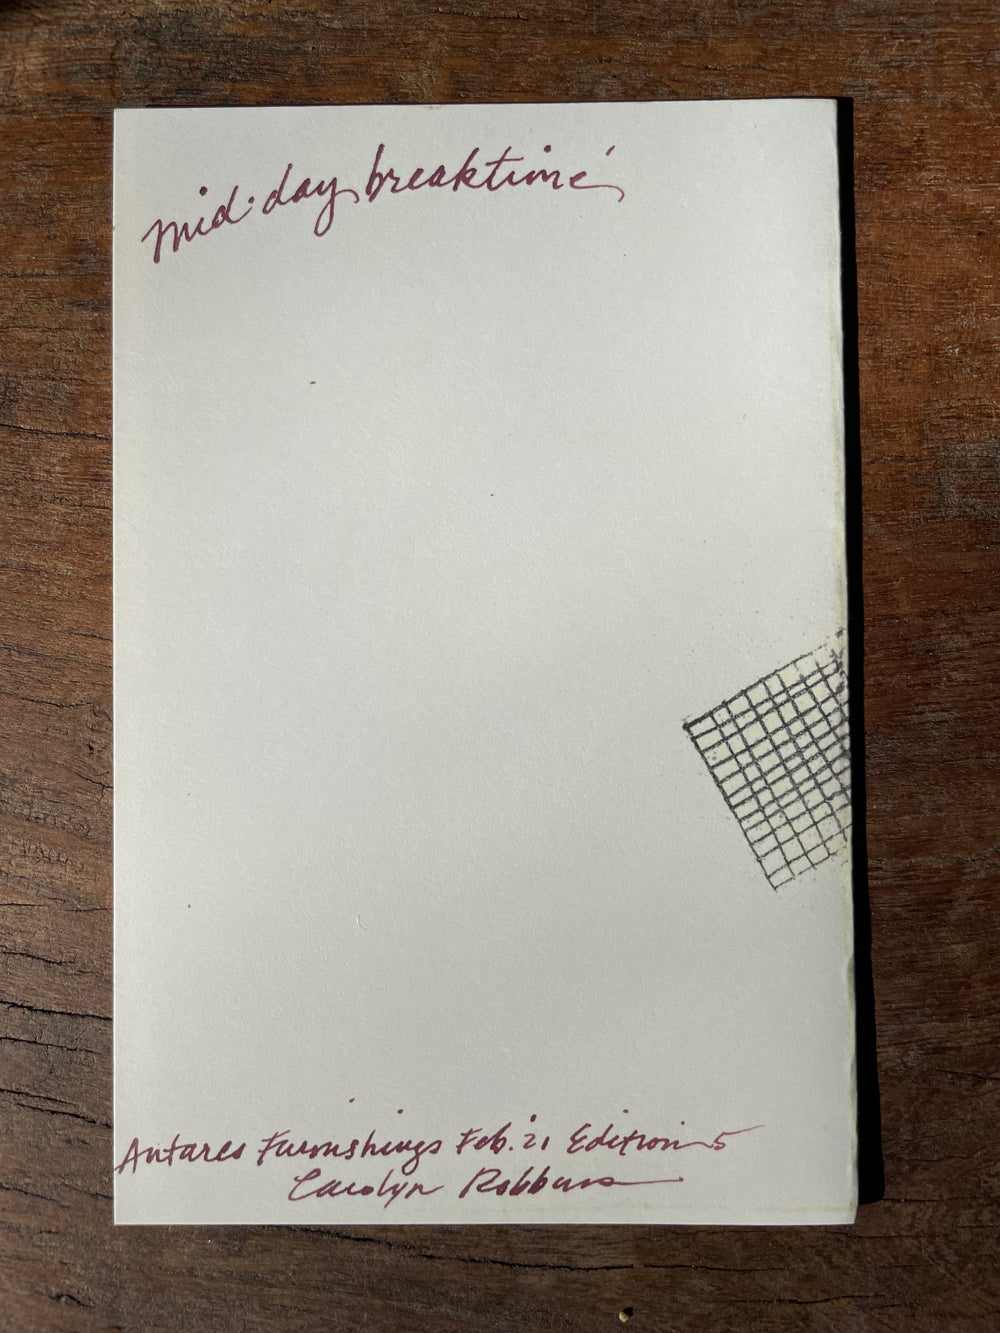 mid-day breaktime
Antares Furnishings Feb. '21 Edition 5
Carolyn Robbins